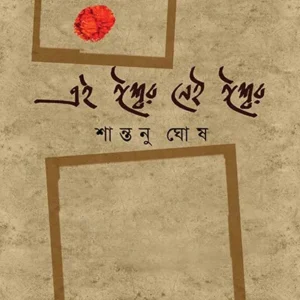 এই ঈশ্বর নেই ঈশ্বর
শান্তনু ঘোষ